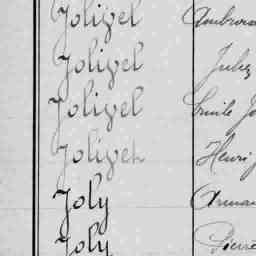 Jolivel Ambrois
Jolivel Jules
Jolivel Emile Jo
Jolivel Henri J
Joly Arman
Joly Pierre